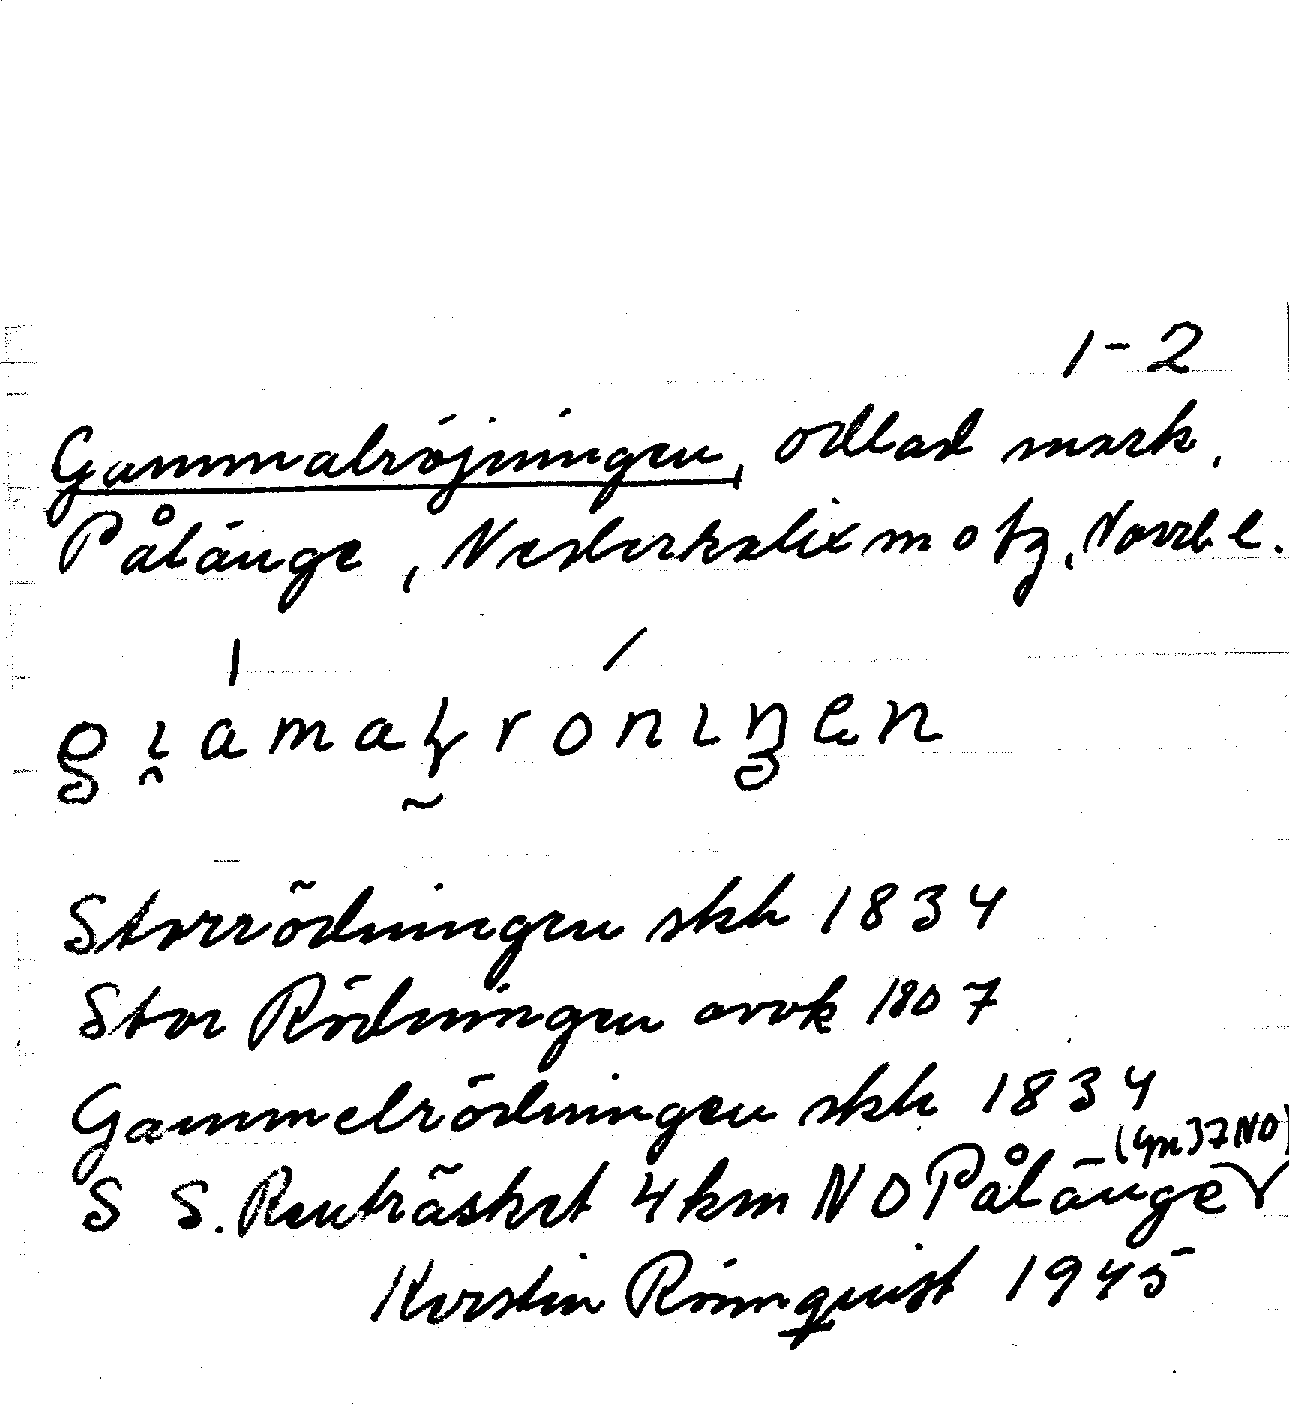 1-2
Gammalröjningen, odlad mark,
Pålänge, Nederkalix motz, Norrb l.
Storrödningen skh 1834
Stor Rödningen avvk 1807
Gammelrödningen skh 1834
(Gn 37 NO)
S S. Renträsket 4 km NO Pålänge
Kerstin Rönnquist 1945